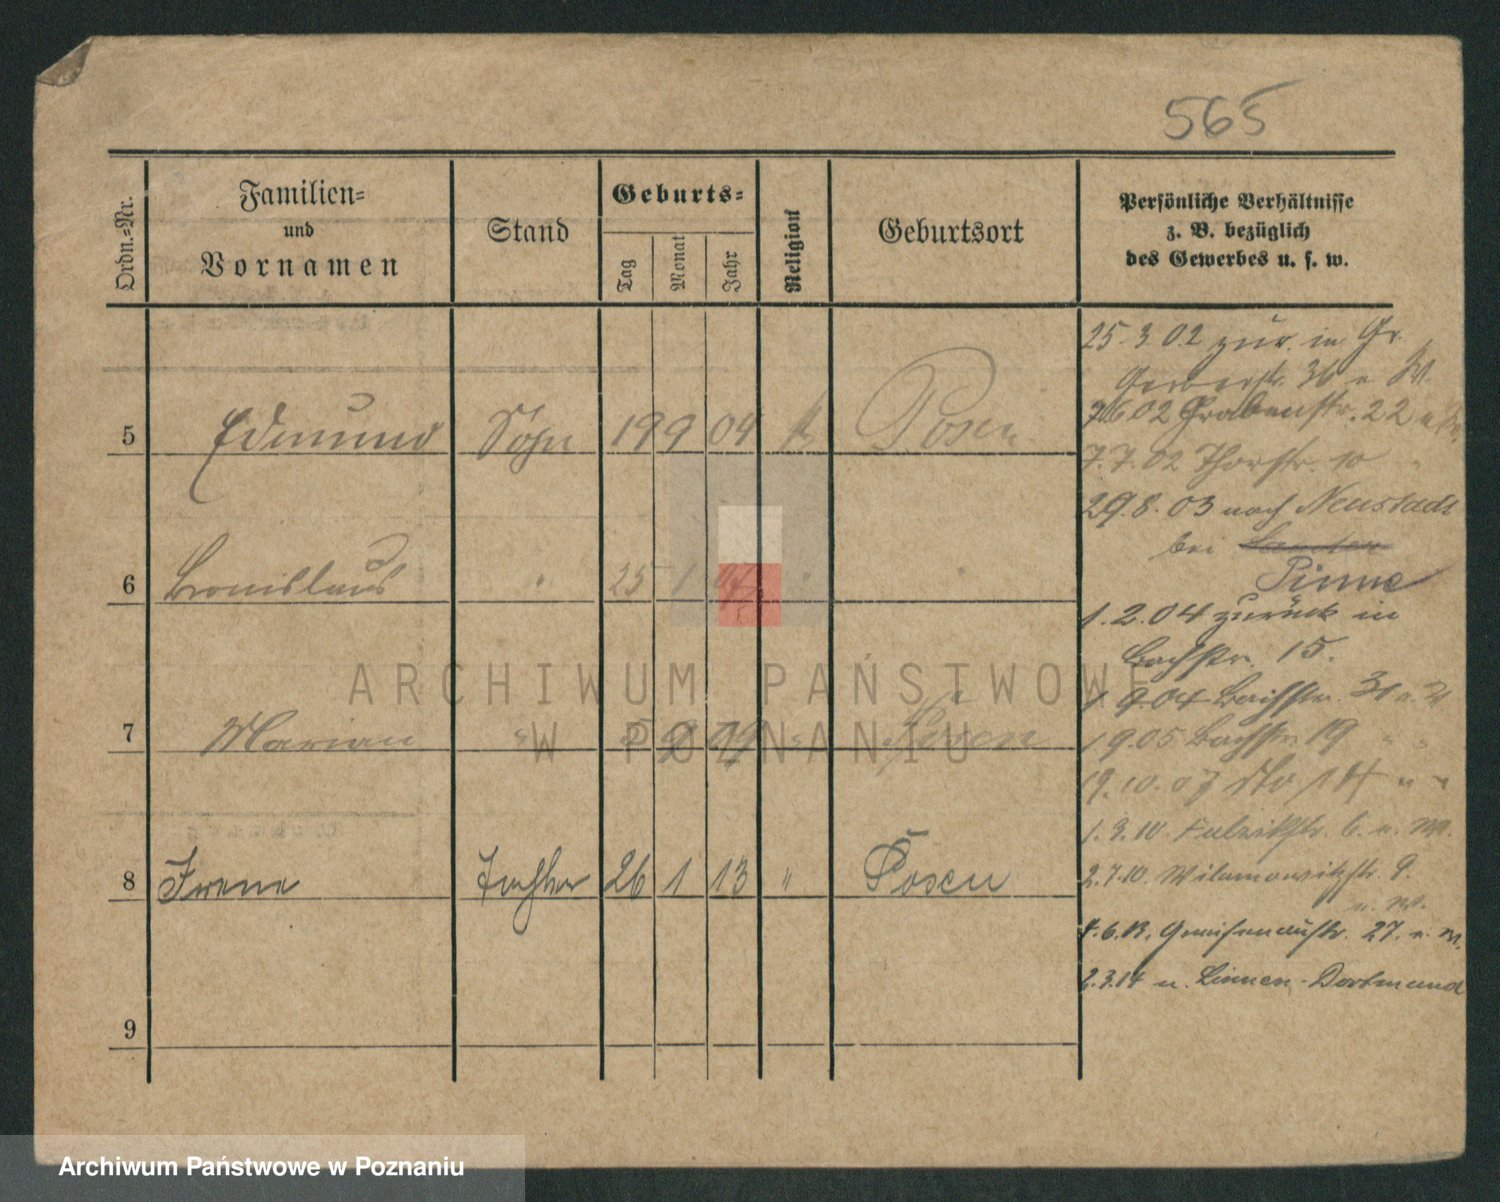 565
Ordn.=Nr.
Familien=
und
Vornamen
Stand
Geburts=
Tag
Monat
Jahr
Religion
Geburtsort
Persönliche Verhältnisse
z. B. bezüglich
des Gewerbes u. s. w.
5 Edmund Sohn 19 9 04 k Posen
6 Bronislaus " 25 1 "
7 Marian " 5 9 09 " Posen
8 Irene Tochter 26 1 13 " Posen
9
25.3.02 zur. in Gr.
Gerberstr. 36 u. W.
7.6.02 Grabenstr. 22 u.
7.7.02 Thorstr. 10
29.8.03 nach Neustadt
bei
Pinne
1.2.04 zurück in
Bachstr. 15.
1.9.04 Bachstr.
1.9.05 Bachstr. 19 " "
19.10.07 dto 14 " "
1.3.10. 6. u. W.
2.7.10. Wilamowitzstr. 9.
u. W.
4.6.13. Gneisenaustr. 27. u. W.
2.3.14 n. Lünen-Dortmund
ARCHIWUM PAŃSTWOWE
W POZNANIU
Archiwum Państwowe w Poznaniu